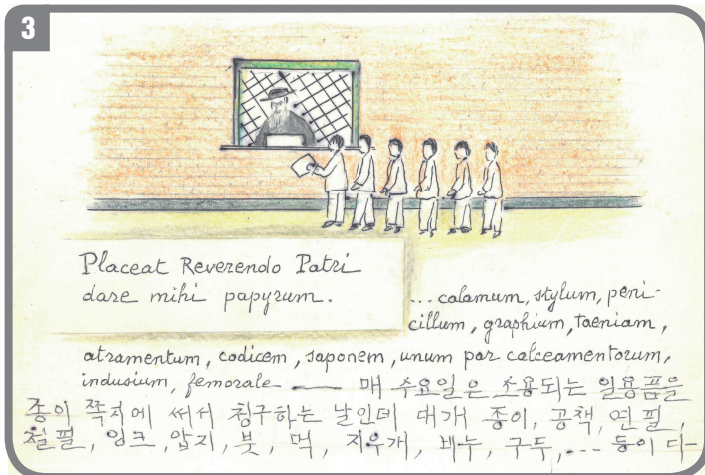 3
Placeat Reverendo Patri
dare mihi papyrum.
... calamum, stylum, peni-
cillum, graphium, taeniam,
atramentum, codicem, saponem, unum par calceamentorum,
indusium, femorale —— 매 수요일은 소용되는 일용품을
종이 쪽지에 써서 청구하는 날인데 대개 종이, 공책, 연필,
철필, 잉크, 압지, 붓, 먹, 지우개, 비누, 구두, ... 등이 다-